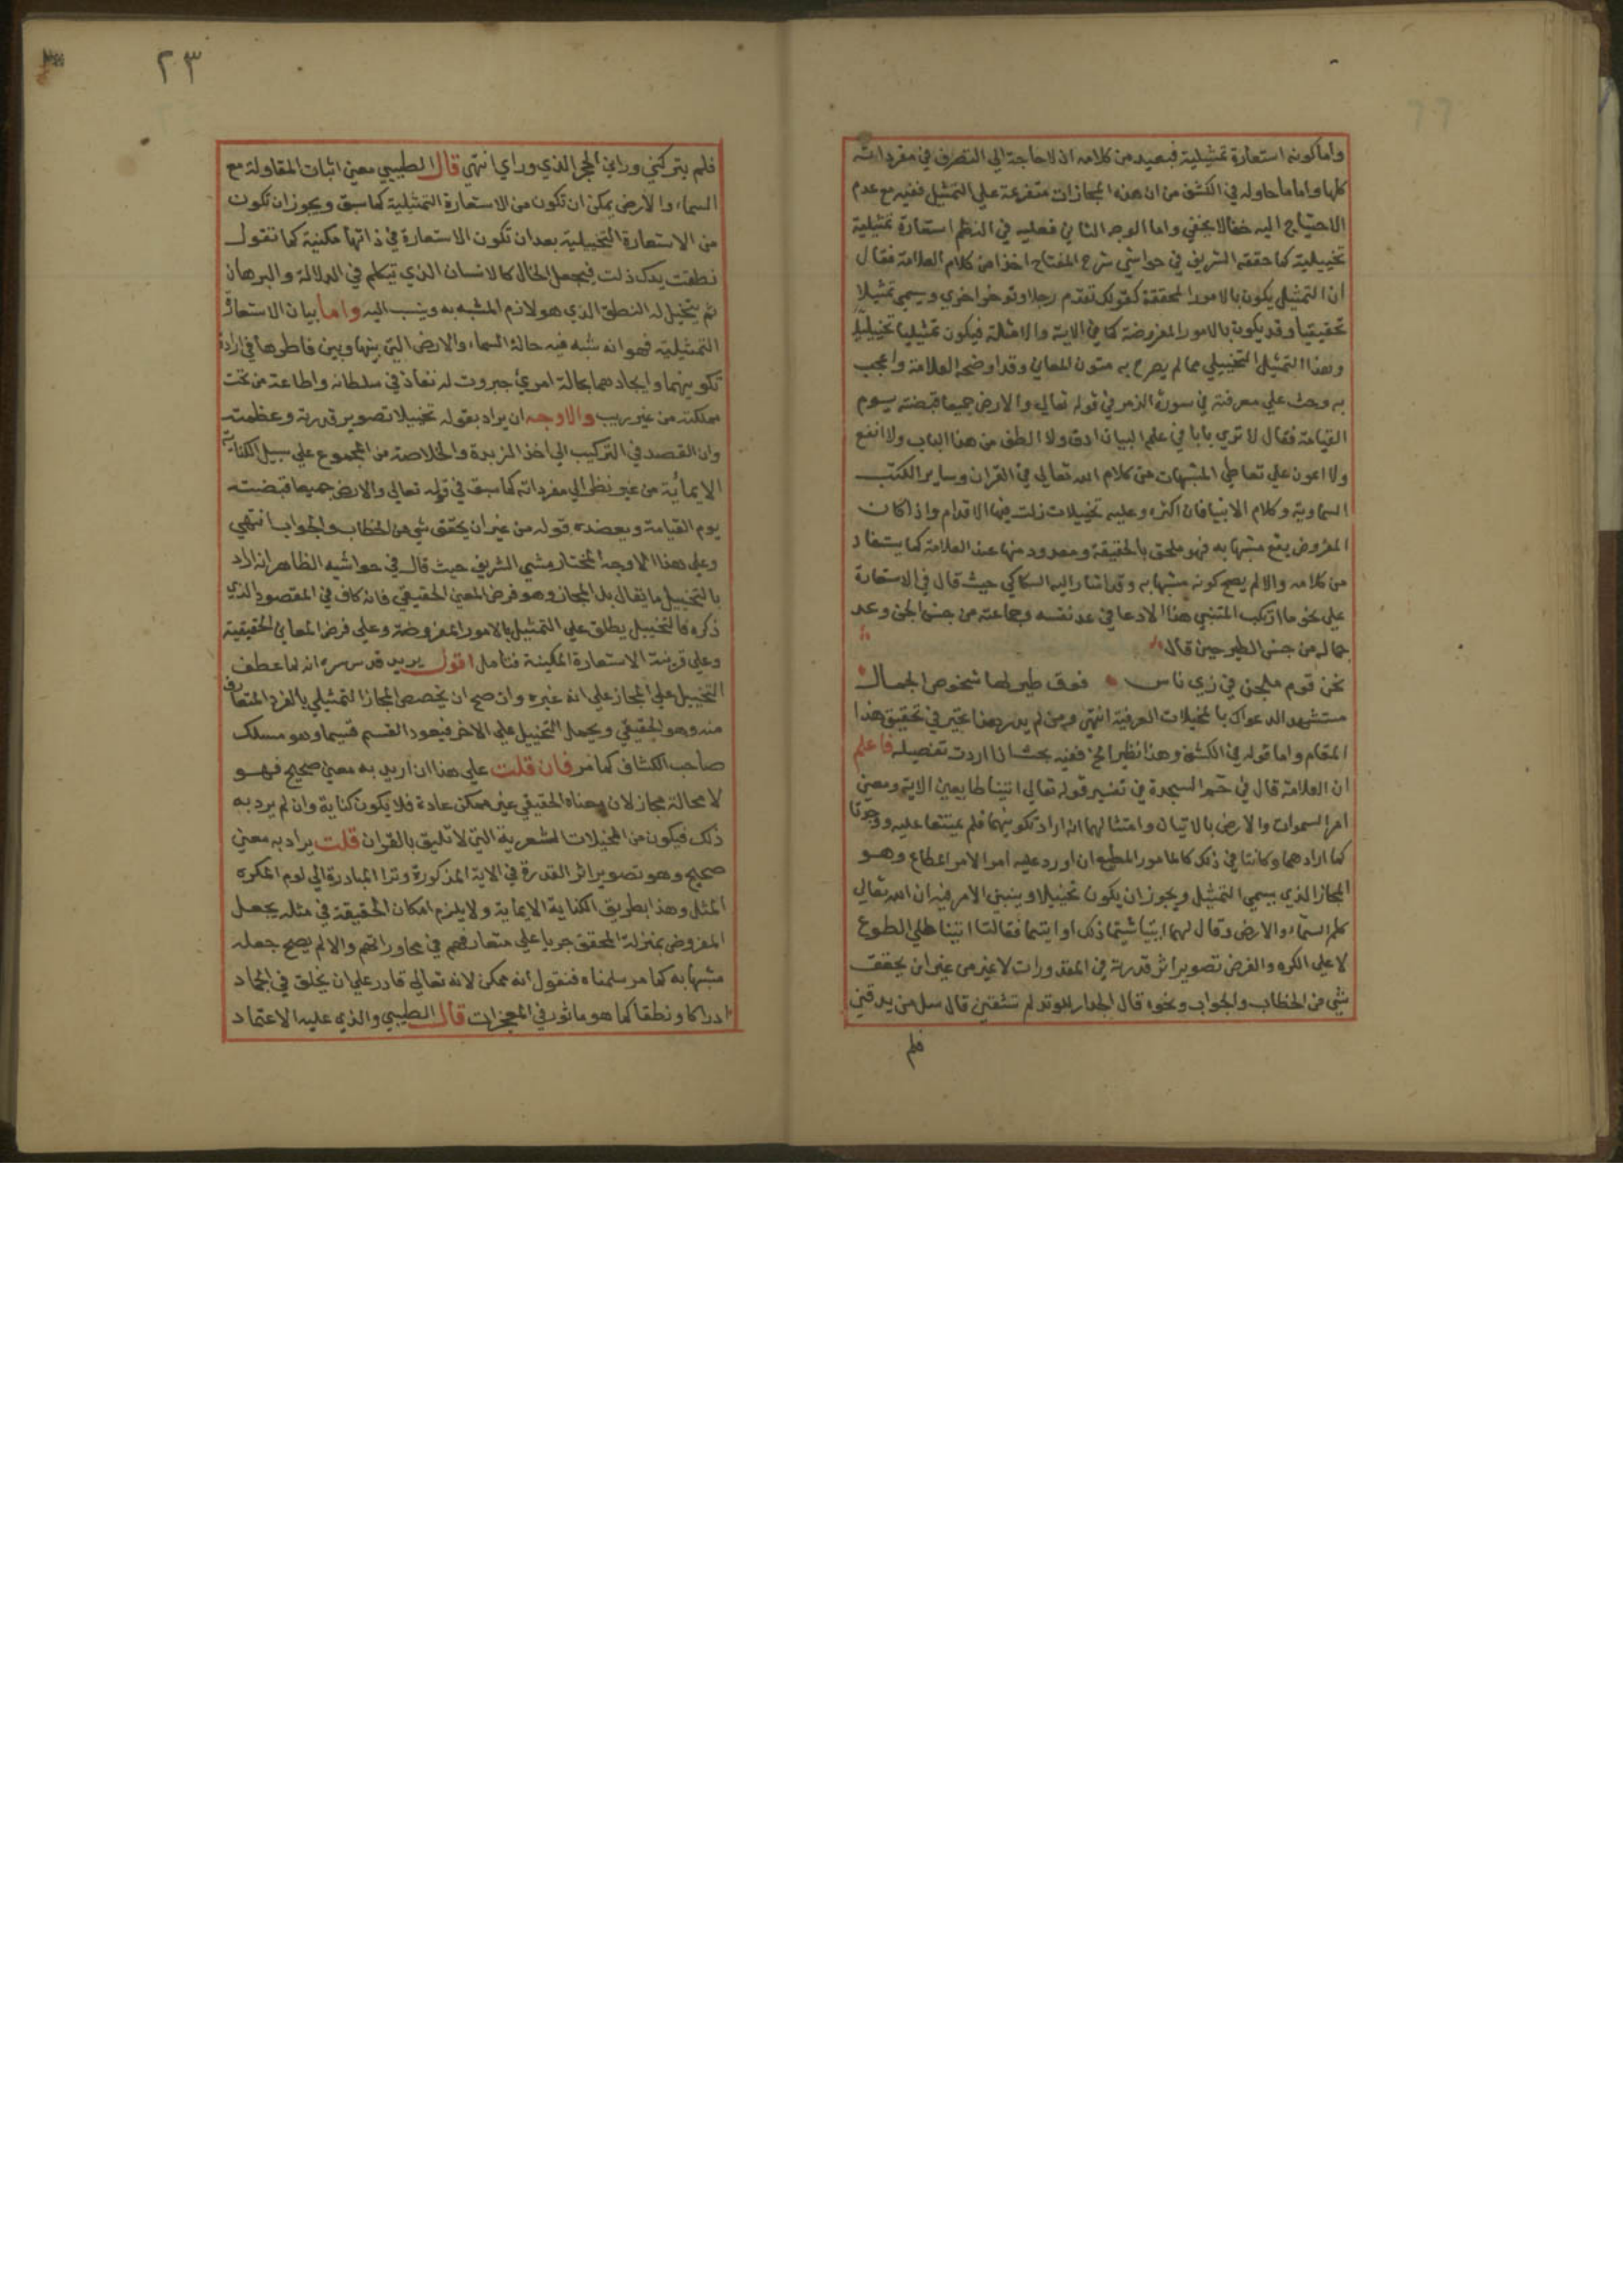 واما كونه استعارة تمثيلية فبعيد من كلامه اذ لا حاجة الي التصرف في مفرداته
كلها واما ما حاوله في الكشف من ان هذه المجازات متفرعة علي التمثيل ففيه مع عدم
الاحتياج اليه خفا لا يخفي واما الوجه الثاني فعليه في النظم استعارة تمثيلية
تخييلية كما حققه الشريف في حواشي شرح المفتاح اخذا من كلام العلامة فقال
ان التمثيل يكون بالامور المحققة كقولك تقدم رجلا وتوخر اخري ويسمي تمثيلا
تحقيقيا وقد يكون بالامور المفروضة كما في الاية والامثلة فيكون تمثيليا تخييليا
وهذا التمثيل التخييلي مما لم يصرح به متون المعاني وقد اوضحه العلامة واعجب
به وحث علي معرفته في سورة الزمر في قوله تعالي والارض جميعا قبضته يوم
القيامة فقال لا تري بابا في علم البيان ادق ولا الطف من هذا الباب ولا انفع
ولا اعون علي تعاطي المشبهات من كلام الله تعالي في القران وساير الكتب
السماوية وكلام الانبيا فان اكثره وعليه تخييلات زلت فيها الاقدام واذا كان
المفروض يقع مشبها به فهو ملحق بالحقيقة ومعدود منها عند العلامة كما يستفاد
من كلامه والا لم يصح كونه مشبها به وقد اشار اليه السكاكي حيث قال في الاستعارة
علي نحو ما ارتكب المتنبي هذا الادعا في عد نفسه وجماعته من جنس الجن وعد
جماله من جنس الطير حين قال
نحن قوم ملجن في زي ناس فوق طير لها شخوص الجمال
مستشهدا لدعواك بالمخيلات العرفية انتهي ومن لم يدر هذا تحير في تحقيق هذا
المقام واما قوله في الكشف وهذا نظير الخ ففيه بحث اذا اردت تفصيله فاعلم
ان العلامة قال في حم السجدة في تفسير قوله تعالي اتينا طايعين الاية ومعني
امر السموات والارض بالاتيان وامتثالهما انه اراد تكوينهما فلم يمتنعا عليه ووجدتا
كما ارادهما وكانتا في ذلك كالمامور المطيع اذا ورد عليه امر الامر المطاع وهو
المجاز الذي يسمي التمثيل ويجوز ان يكون تخييلا ويبني الامر فيه ان الله تعالي
كلم السماء والارض وقال لهما ايتيا شيتما ذلك او ابيتما فقالتا اتينا علي الطوع
لا علي الكره والغرض تصوير اثر قدرته في المقدورات لا غير من غير ان يحقق
شي من الخطاب والجواب ونحوه قال الجدار للوتد لم تشقني قال سل من يدقني
فلم
٢٣
فلم يتركني وراي الحجر الذي وراي انتهي قال الطيبي معني اثبات المقاولة مع
السماء والارض يمكن ان تكون من الاستعارة التمثيلية كما سبق ويجوز ان تكون
من الاستعارة التخييلية بعد ان تكون الاستعارة في ذاتها مكنية كما تقول
نطقت يدك ذلت فيجعل الحال كالانسان الذي يتكلم في الدلالة والبرهان
ثم يتخيل له النطق الذي هو لازم المشبه به وينسب اليه واما بيان الاستعارة
التمثيلية فهو انه شبه فيه حالة السماء والارض التي بينها وبين فاطرها في ارادة
تكوينهما وايجادهما بحالة امري جبروت له نفاذ في سلطانه واطاعة من تحت
مملكته من غير ريب والاوجه ان يراد بقوله تخييلا تصوير قدرته وعظمته
وان القصد في التركيب الي اخذ الزبدة والخلاصة من المجموع علي سبيل الكناية
الايمائية من غير نظر الي مفرداته كما سبق في قوله تعالي والارض جميعا قبضته
يوم القيامة ويعضده قوله من غير ان يحقق شي من الخطاب والجواب انتهي
وعلي هذا الاوجه المختار مشي الشريف حيث قال في حواشيه الظاهر انه اراد
بالتخييل ما يقابل المجاز وهو فرض المعني الحقيقي فانه كاف في المقصود الذي
ذكره فالتخييل يطلق علي التمثيل بالامور المفروضة وعلي فرض المعاني الحقيقية
وعلي قرينة الاستعارة المكنية فتامل اقول يريد قدس سره انه لما عطف
التخييل علي المجاز علي انه غيره وان صح ان يخصص المجاز التمثيلي بالفرد المتعارف
منه وهو الحقيقي ويحمل التخييل علي الاخر فيعود القسم قسيما وهو مسلك
صاحب الكشاف كما مر فان قلت علي هذا ان اريد به معني صحيح فهو
لا محالة مجاز لان معناه الحقيقي غير ممكن عادة فلا يكون كناية وان لم يرد به
ذلك فيكون من المخيلات الشعرية التي لا تليق بالقران قلت يراد به معني
صحيح وهو تصوير اثر القدرة في الاية المذكورة وترا المبادرة الي لوم المكره
المثل وهذا بطريق الكناية الايمائية ولا يلزم امكان الحقيقة في مثله بجعل
المفروض بمنزلة المحقق جريا علي متعارفهم في محاوراتهم والا لم يصح جعله
مشبها به كما مر سلمناه فنقول انه ممكن لانه تعالي قادر علي ان يخلق في الجماد
ادراكا ونطقا كما هو ماثور في المعجزات قال الطيبي والذي عليه الاعتماد